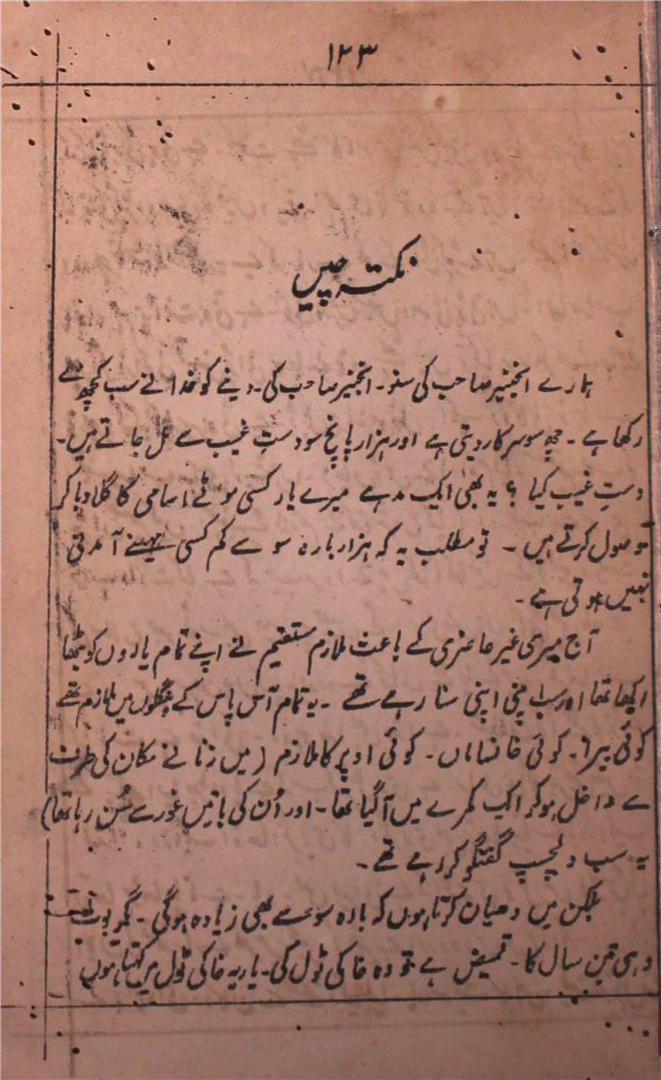 ۱۲۳
نکتہ چیں
ہمارے انجنیر صاحب کی سنو۔ انجنیر صاحب کی۔ دینے کو خدا نے سب کچھ دے
رکھا ہے۔ چھ سو سرکار دیتی ہے اور ہزار پانچ سو دستِ غیب سے مل جاتے ہیں۔
دستِ غیب کیا ؟ یہ بھی ایک مد ہے میرے یار کسی موٹے اسامی کا گلا دبا کر
وصول کرتے ہیں ۔ تو مطلب یہ کہ ہزار بارہ سو سے کم کسی مہینے آمدنی
نہیں ہوتی ہے۔
آج میری غیر حاضری کے باعث ملازم مستقیم نے اپنے تمام یاروں کو بٹھا
رکھا تھا اور سب اپنی اپنی سنا رہے تھے ۔ یہ تمام آس پاس کے بنگلوں میں ملازم تھے
کوئی بیرا۔ کوئی خانساماں۔ کوئی اوپر کا ملازم (میں زنانے مکان کی طرف
سے داخل ہو کر ایک کمرے میں آ گیا تھا۔ اور اُن کی باتیں غور سے سُن رہا تھا)
یہ سب دلچسپ گفتگو کر رہے تھے۔
لیکن میں دھیان کرتا ہوں کہ بارہ سو سے بھی زیادہ ہو گی۔ مگر بوٹ
وہی تین سال کا۔ قمیض ہے تو وہ خاکی ٹول کی۔ یار یہ خاکی ٹول میں کہتا ہوں